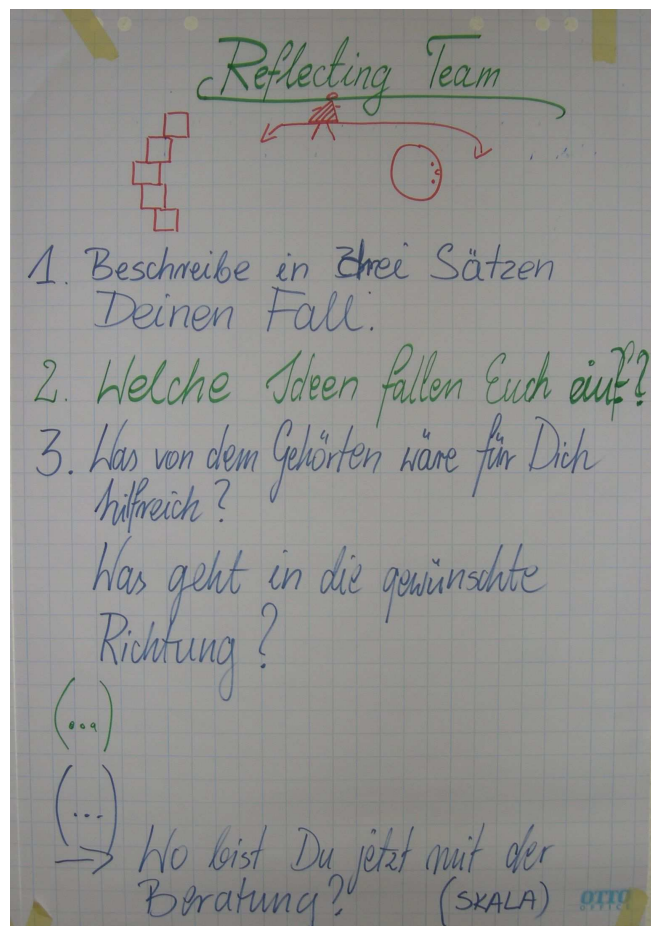 Reflecting Team
1. Beschreibe in drei Sätzen
Deinen Fall.
2. Welche Ideen fallen Euch ein?
3. Was von dem Gehörten wäre für Dich
hilfreich?
Was geht in die gewünschte
Richtung?
(...)
(...)
→ Wo bist Du jetzt mit der
Beratung? (SKALA)
OTTO
OFFICE